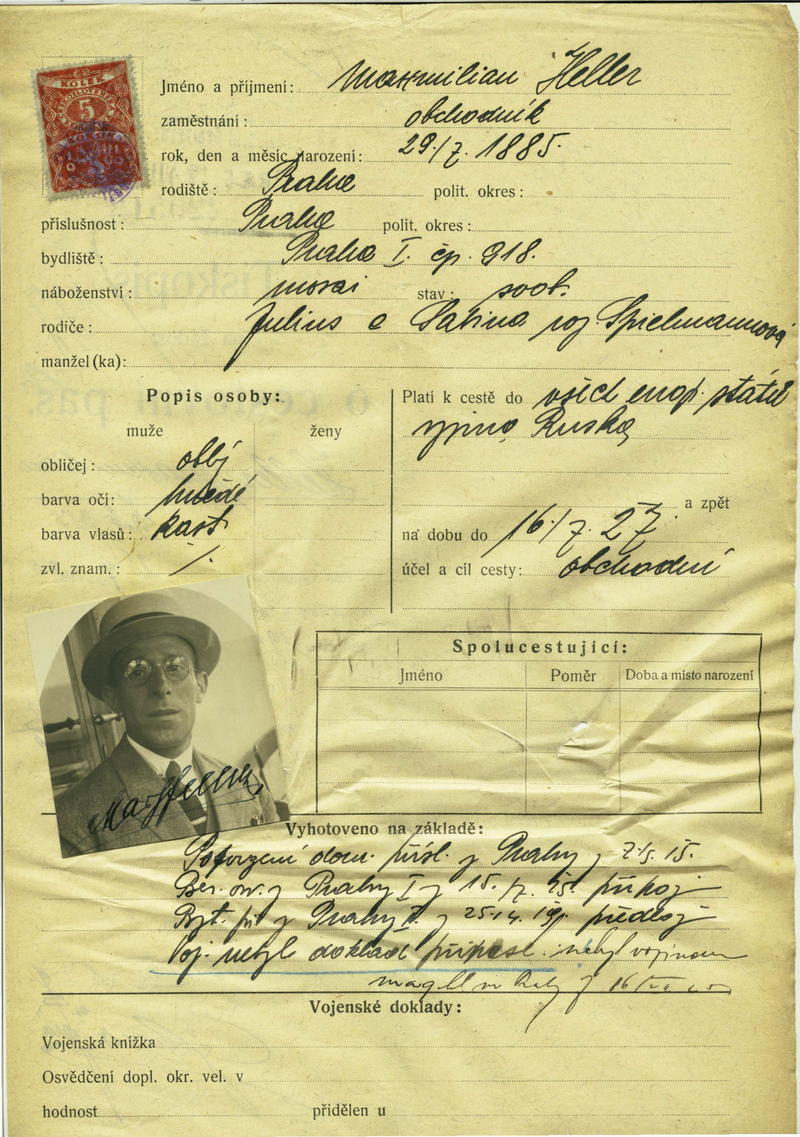 KOLEK
5
Jméno a příjmení: Maxmilian Heller
zaměstnání: obchodník
rok, den a měsíc narození: 29./7. 1885.
rodiště: Praha polit. okres:
příslušnost: Praha polit. okres:
bydliště: Praha I. čp. 918.
náboženství: mosai stav: svob.
rodiče: Julius a Sabina roz. Spielmannová
manžel (ka):
Popis osoby:
muže ženy
obličej:
barva očí: hnědé
barva vlasů: kašt.
zvl. znam.: /.
Platí k cestě do všech evrop. států
vyjma Ruska
a zpět
na dobu do 16./7. 27.
účel a cíl cesty: obchodní
Spolucestující:
Jméno Poměr Doba a místo narození
Vyhotoveno na základě:
Potvrzení dom. přísl. z Prahy z 7./5. 15.
z Prahy I z 15./7. 25. připoj
z Prahy z 25.4. předlož
Voj. nebyl doklad nebyl vojínem
Vojenské doklady:
Vojenská knížka
Osvědčení dopl. okr. vel. v
hodnost přidělen u